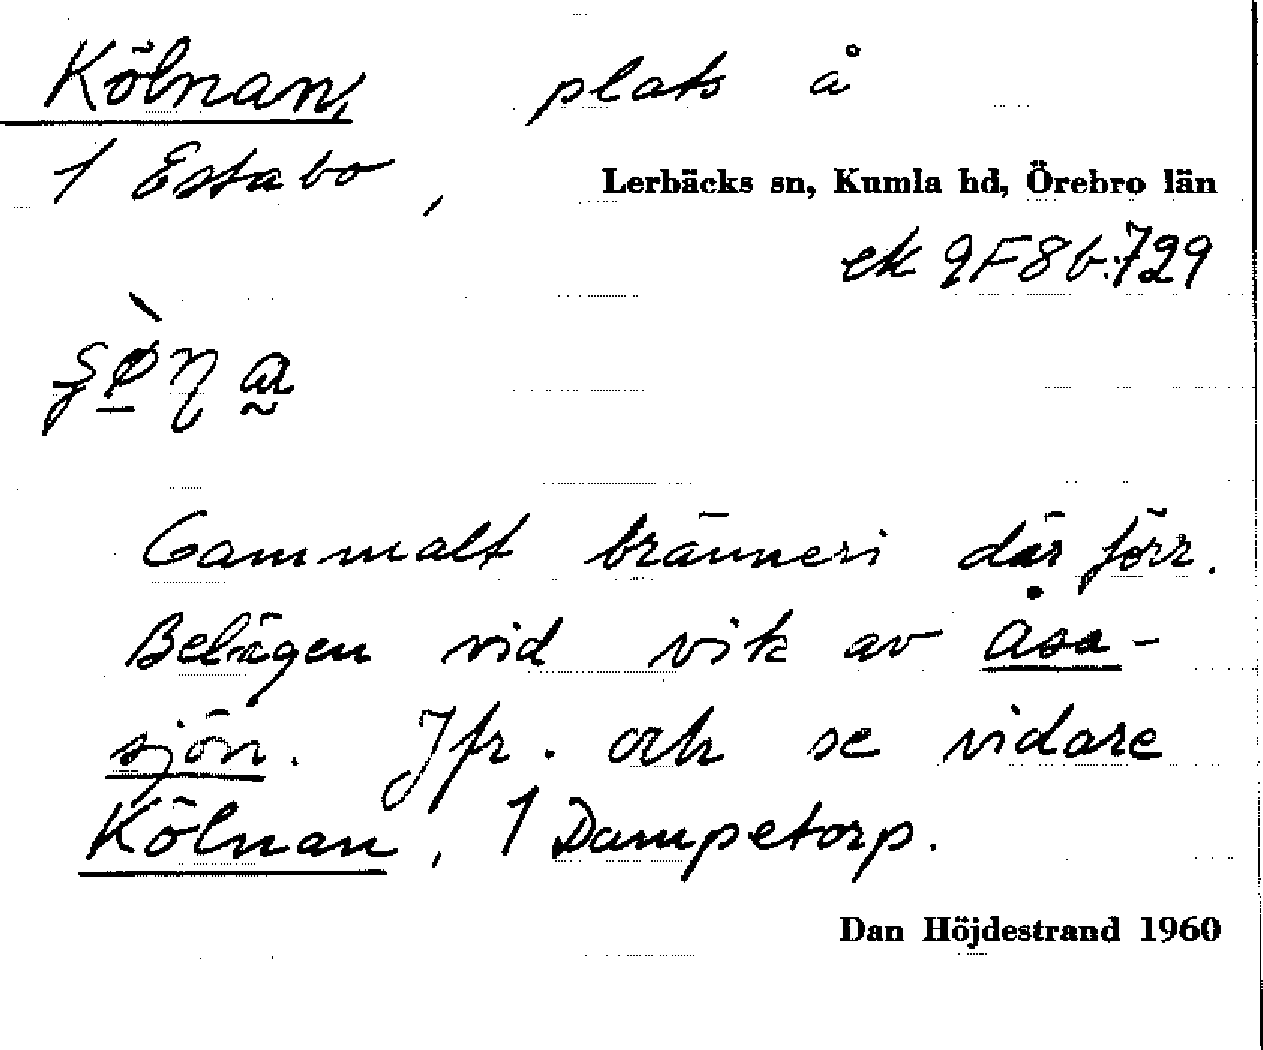 Kölnan, plats å
1 Estabo,
Lerbäcks sn, Kumla hd, Örebro län
ek 9F8b:729
Gammalt bränneri där förr.
Belägen vid vik av Åsa-
sjön. Jfr. och se vidare
Kölnan, 1 Dampetorp.
Dan Höjdestrand 1960